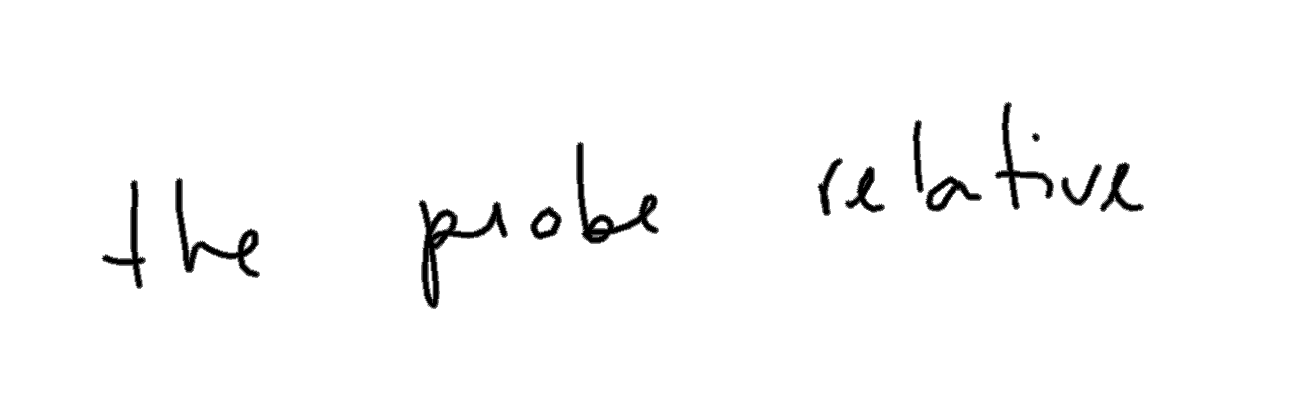 the probe relative